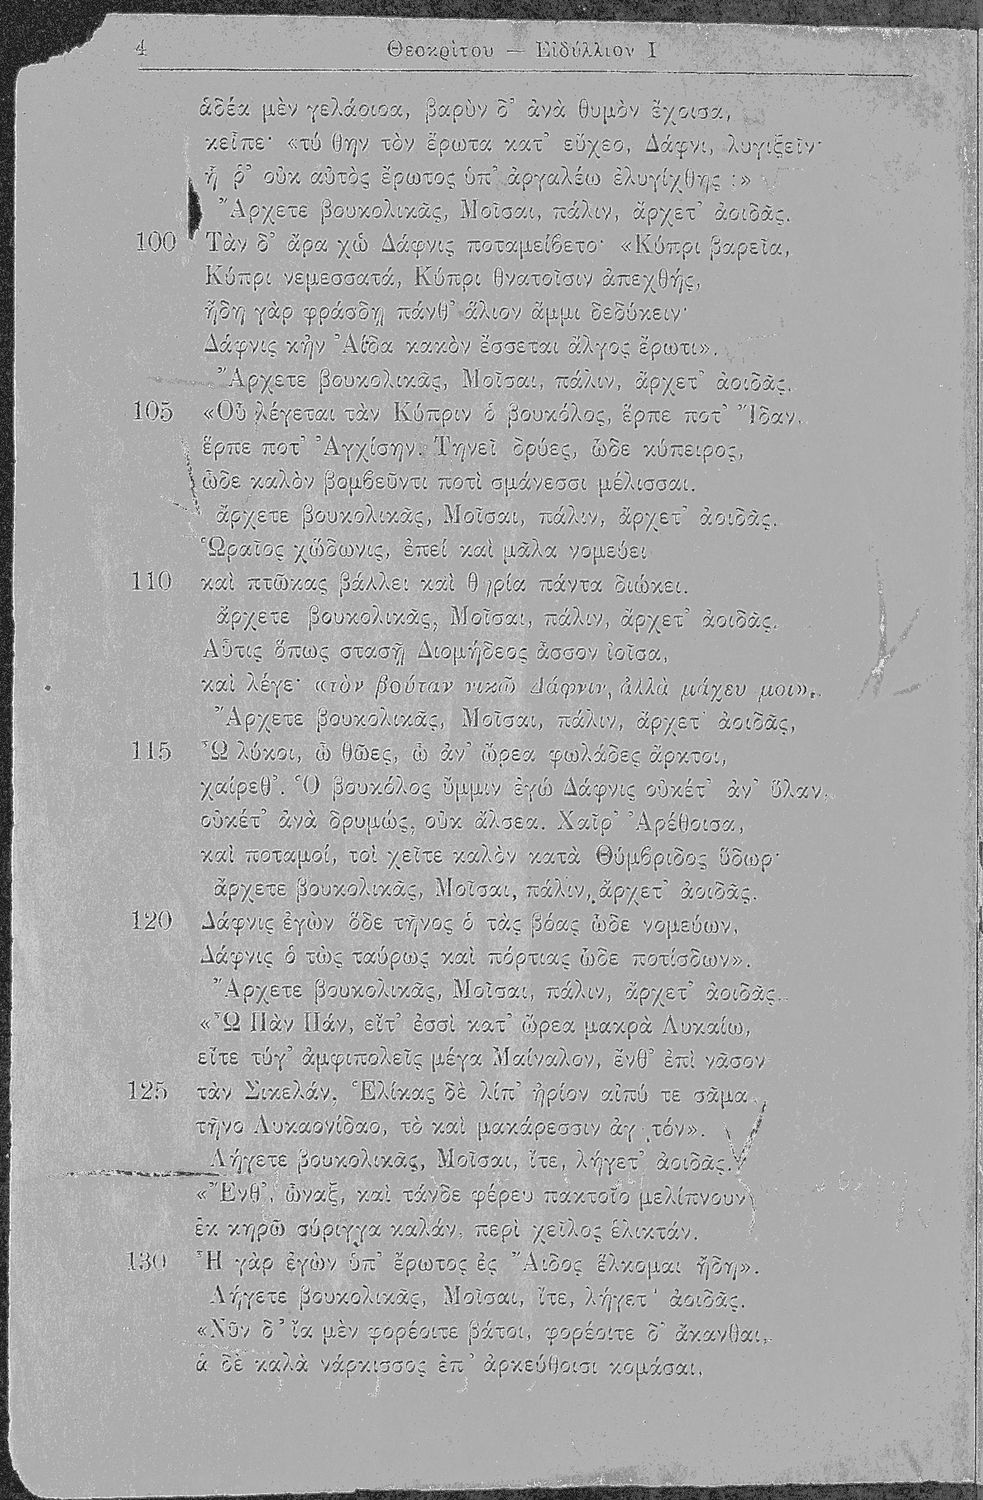 4 Θεοκρίτου — Εἰδύλλιον I
ἁδέα μὲν γελάοισα, βαρὺν δ’ ἀνὰ θυμὸν ἔχοισα,
κεἶπε· «τύ θην τὸν ἔρωτα κατ’ εὔχεο, Δάφνι, λυγιξεῖν·
ἦ ῥ’ οὐκ αὐτὸς ἔρωτος ὑπ’ ἀργαλέω ἐλυγίχθης ;»
Ἄρχετε βουκολικᾶς, Μοῖσαι, πάλιν, ἄρχετ’ ἀοιδᾶς.
100 Τὰν δ’ ἄρα χὠ Δάφνις ποταμείβετο· «Κύπρι βαρεῖα,
Κύπρι νεμεσσατά, Κύπρι θνατοῖσιν ἀπεχθής,
ἤδη γὰρ φράσδῃ πάνθ’ ἅλιον ἄμμι δεδύκειν·
Δάφνις κἠν Ἀΐδα κακὸν ἔσσεται ἄλγος ἔρωτι».
Ἄρχετε βουκολικᾶς, Μοῖσαι, πάλιν, ἄρχετ’ ἀοιδᾶς.
105 «Οὗ λέγεται τὰν Κύπριν ὁ βουκόλος, ἕρπε ποτ’ Ἴδαν,
ἕρπε ποτ’ Ἀγχίσην. Τηνεῖ δρύες, ὧδε κύπειρος,
ὧδε καλὸν βομβεῦντι ποτὶ σμάνεσσι μέλισσαι.
ἄρχετε βουκολικᾶς, Μοῖσαι, πάλιν, ἄρχετ’ ἀοιδᾶς.
Ὡραῖος χὤδωνις, ἐπεί καὶ μᾶλα νομεύει
110 καὶ πτῶκας βάλλει καὶ θηρία πάντα διώκει.
ἄρχετε βουκολικᾶς, Μοῖσαι, πάλιν, ἄρχετ’ ἀοιδᾶς.
Αὖτις ὅπως στασῇ Διομήδεος ἆσσον ἰοῖσα,
καὶ λέγε· «τὸν βούταν νικῶ Δάφνιν, ἀλλὰ μάχευ μοι».
Ἄρχετε βουκολικᾶς, Μοῖσαι, πάλιν, ἄρχετ’ ἀοιδᾶς,
115 Ὦ λύκοι, ὦ θῶες, ὦ ἀν’ ὤρεα φωλάδες ἄρκτοι,
χαίρεθ’. Ὁ βουκόλος ὔμμιν ἐγώ Δάφνις οὐκέτ’ ἀν’ ὕλαν,
οὐκέτ’ ἀνὰ δρυμώς, οὐκ ἄλσεα. Χαῖρ’ Ἀρέθοισα,
καὶ ποταμοί, τοὶ χεῖτε καλὸν κατὰ Θύμβριδος ὕδωρ·
ἄρχετε βουκολικᾶς, Μοῖσαι, πάλιν, ἄρχετ’ ἀοιδᾶς.
120 Δάφνις ἐγὼν ὅδε τῆνος ὁ τὰς βόας ὧδε νομεύων,
Δάφνις ὁ τὼς ταύρως καὶ πόρτιας ὧδε ποτίσδων».
Ἄρχετε βουκολικᾶς, Μοῖσαι, πάλιν, ἄρχετ’ ἀοιδᾶς.
«Ὦ Πὰν Πάν, εἴτ’ ἐσσὶ κατ’ ὤρεα μακρὰ Λυκαίω,
εἴτε τύγ’ ἀμφιπολεῖς μέγα Μαίναλον, ἔνθ’ ἐπὶ νᾶσον
125 τὰν Σικελάν, Ἑλίκας δὲ λίπ’ ἠρίον αἰπύ τε σᾶμα
τῆνο Λυκαονίδαο, τὸ καὶ μακάρεσσιν ἀγητόν».
Λήγετε βουκολικᾶς, Μοῖσαι, ἴτε, λήγετ’ ἀοιδᾶς.
«Ἔνθ’, ὦναξ, καὶ τάνδε φέρευ πακτοῖο μελίπνουν
ἐκ κηρῶ σύριγγα καλάν, περὶ χεῖλος ἑλικτάν.
130 Ἦ γὰρ ἐγὼν ὑπ’ ἔρωτος ἐς Ἄιδος ἕλκομαι ἤδη».
Λήγετε βουκολικᾶς, Μοῖσαι, ἴτε, λήγετ’ ἀοιδᾶς.
«Νῦν δ’ ἴα μὲν φορέοιτε βάτοι, φορέοιτε δ’ ἄκανθαι,
ἁ δὲ καλὰ νάρκισσος ἐπ’ ἀρκεύθοισι κομάσαι,